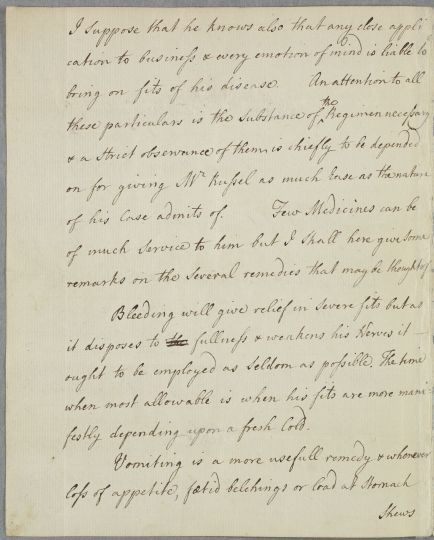 I suppose that he knows also that any close appli
cation to business & every emotion of mind is liable to
bring on fits of his disease. An attention to all
these particulars is the Substance of the Regimen necessary
& a Strict observance of them, is chiefly to be depended
on for giving Mr. Russel as much Ease as the nature
of his Case admits of. Few Medicines can be
of much Service to him but I shall here give some
remarks on the several remedies that may be thought of
Bleeding will give relief in Severe fits but as
it disposes to fullness & weakens his Nerves it
ought to be employed as seldom as possible. The time
when most allowable is when his fits are more mani-
festly depending upon a fresh Cold.
Vomiting is a more usefull remedy & whenever
Loss of appetite, fœtid belchings or Load at Stomach
Shews